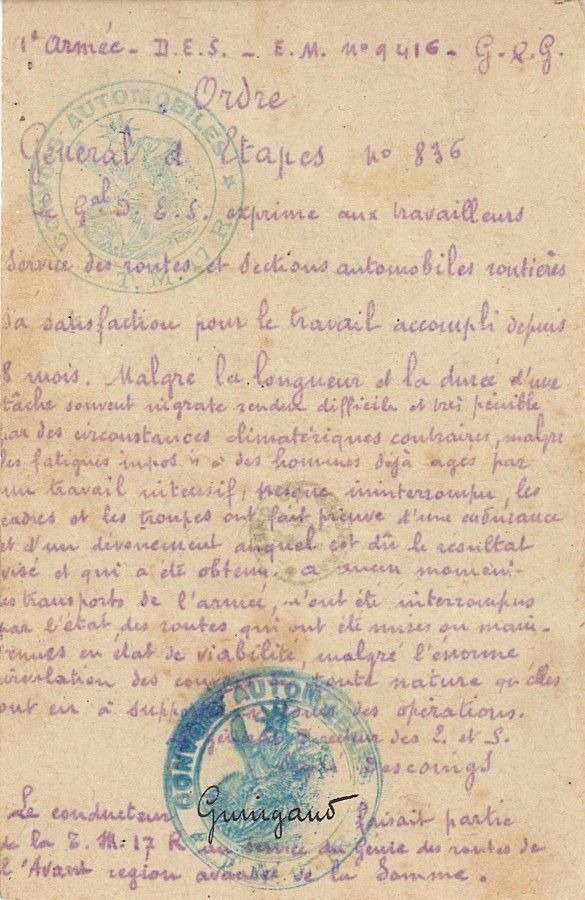 1e Armée - D.E.S. - E.M. No 9416 - G.Q.G.
Ordre
General d Etapes No 836
Le Gal D.E.S. exprime aux travailleurs
Service des routes et Sections automobiles routières
sa satisfaction pour le travail accompli depuis
8 mois. Malgré la longueur et la durée d'une
tâche souvent rendue difficile et très pénible
par des circonstances climatériques contraires, malgré
les fatigues imposées à des hommes déjà agés par
un travail intensif, presque ininterrompu, les
cadres et les troupes ont fait preuve d'une endurance
et d'un dévouement auquel est dû le resultat
visé et qui a été obtenu. a aucun moment
les transports de l'armée, n'ont été interrompus
par l'état des routes qui ont été mises ou main-
tenues en état de viabilité, malgré l'énorme
circulation des convois toute nature qu'elles
ont eu à supporter des opérations.
Général Directeur des E. et S.
Le conducteur Guinigaud faisait partie
de la T.M. 17 R au service du Genie des routes de
l'Avant region avancée de la Somme.
CONVOIS AUTOMOBILES
T.M. 17 R
CONVOIS AUTOMOBILES